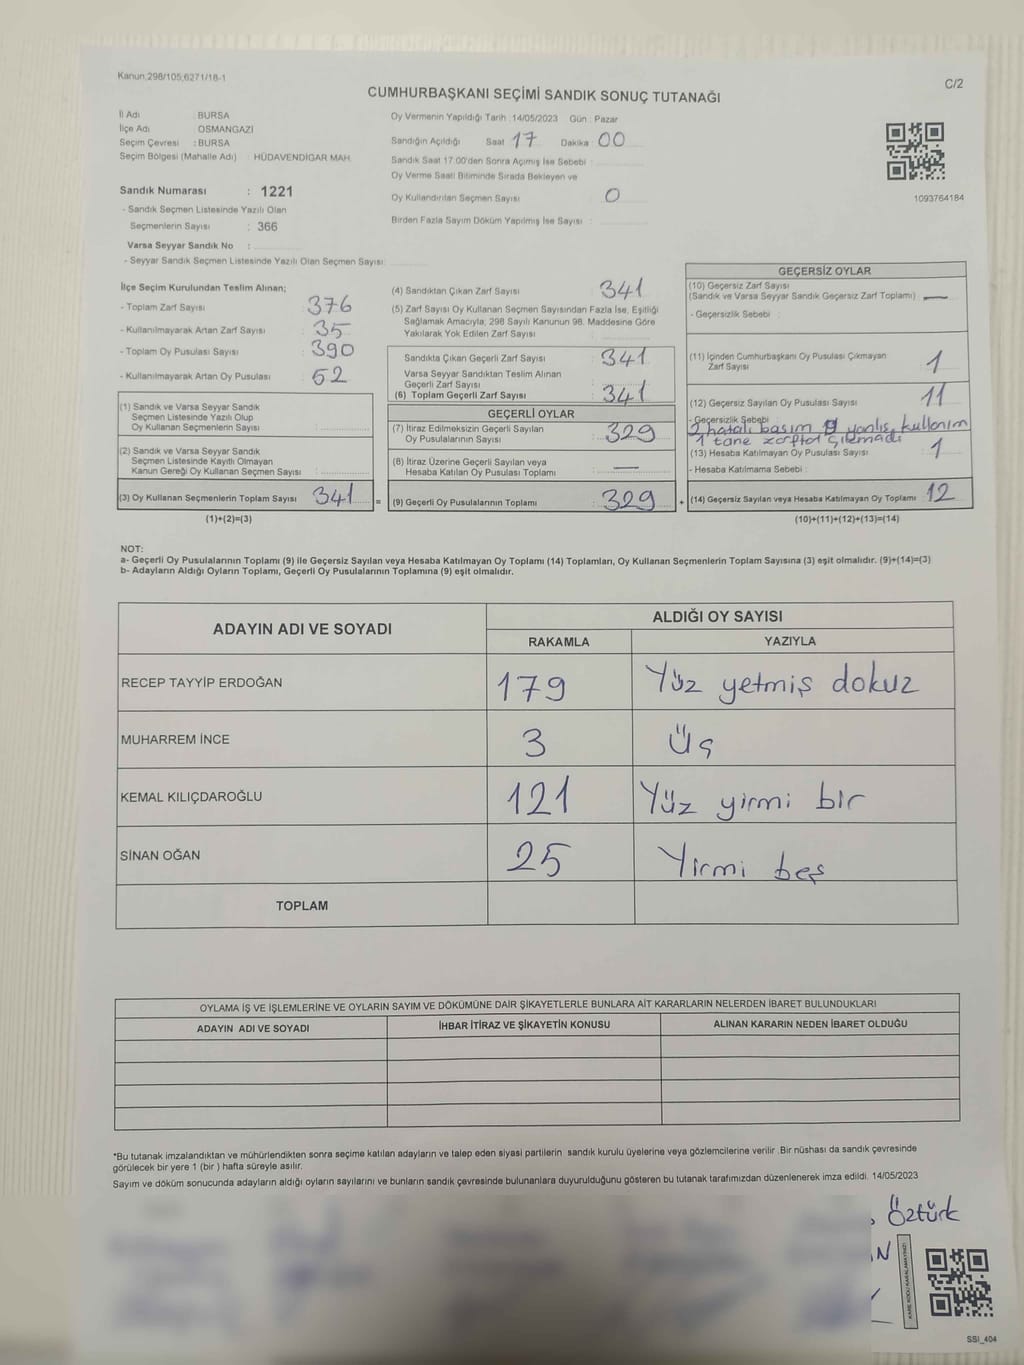 Kanun,298/105,6271/18-1
C/2
CUMHURBAŞKANI SEÇİMİ SANDIK SONUÇ TUTANAĞI
İl Adı : BURSA
İlçe Adı : OSMANGAZI
Seçim Çevresi : BURSA
Seçim Bölgesi (Mahalle Adı) : HÜDAVENDİGAR MAH.
Sandık Numarası : 1221
- Sandık Seçmen Listesinde Yazılı Olan
Seçmenlerin Sayısı : 366
Varsa Seyyar Sandık No :
- Seyyar Sandık Seçmen Listesinde Yazılı Olan Seçmen Sayısı:
Oy Vermenin Yapıldığı Tarih :14/05/2023 Gün : Pazar
Sandığın Açıldığı Saat 17 Dakika 00
Sandık Saat 17.00'den Sonra Açımış İse Sebebi :
Oy Verme Saati Bitiminde Sırada Bekleyen ve
Oy Kullandırılan Seçmen Sayısı 0
Birden Fazla Sayım Döküm Yapılmış İse Sayısı :
1093764184
İlçe Seçim Kurulundan Teslim Alınan;
- Toplam Zarf Sayısı 376
- Kullanılmayarak Artan Zarf Sayısı 35
- Toplam Oy Pusulası Sayısı 390
- Kullanılmayarak Artan Oy Pusulası 52
(1) Sandık ve Varsa Seyyar Sandık
Seçmen Listesinde Yazılı Olup
Oy Kullanan Seçmenlerin Sayısı :
(2) Sandık ve Varsa Seyyar Sandık
Seçmen Listesinde Kayıtlı Olmayan
Kanun Gereği Oy Kullanan Seçmen Sayısı :
(3) Oy Kullanan Seçmenlerin Toplam Sayısı 341 =
(1)+(2)=(3)
(4) Sandıktan Çıkan Zarf Sayısı 341
(5) Zarf Sayısı Oy Kullanan Seçmen Sayısından Fazla İse, Eşitliği
Sağlamak Amacıyla; 298 Sayılı Kanunun 98. Maddesine Göre
Yakılarak Yok Edilen Zarf Sayısı :
Sandıkta Çıkan Geçerli Zarf Sayısı : 341
Varsa Seyyar Sandıktan Teslim Alınan
Geçerli Zarf Sayısı :
(6) Toplam Geçerli Zarf Sayısı : 341
GEÇERLİ OYLAR
(7) İtiraz Edilmeksizin Geçerli Sayılan
Oy Pusulalarının Sayısı : 329
(8) İtiraz Üzerine Geçerli Sayılan veya
Hesaba Katılan Oy Pusulası Toplamı : —
(9) Geçerli Oy Pusulalarının Toplamı : 329 +
GEÇERSİZ OYLAR
(10) Geçersiz Zarf Sayısı
(Sandık ve Varsa Seyyar Sandık Geçersiz Zarf Toplamı) : —
- Geçersizlik Sebebi :
(11) İçinden Cumhurbaşkanı Oy Pusulası Çıkmayan
Zarf Sayısı 1
(12) Geçersiz Sayılan Oy Pusulası Sayısı 11
- Geçersizlik Sebebi
2 hatalı basım 9 yanlış kullanım
1 tane zarftan çıkmadı
(13) Hesaba Katılmayan Oy Pusulası Sayısı : 1
- Hesaba Katılmama Sebebi :
(14) Geçersiz Sayılan veya Hesaba Katılmayan Oy Toplamı 12
(10)+(11)+(12)+(13)=(14)
NOT:
a- Geçerli Oy Pusulalarının Toplamı (9) ile Geçersiz Sayılan veya Hesaba Katılmayan Oy Toplamı (14) Toplamları, Oy Kullanan Seçmenlerin Toplam Sayısına (3) eşit olmalıdır. (9)+(14)=(3)
b- Adayların Aldığı Oyların Toplamı, Geçerli Oy Pusulalarının Toplamına (9) eşit olmalıdır.
ADAYIN ADI VE SOYADI
ALDIĞI OY SAYISI
RAKAMLA YAZIYLA
RECEP TAYYİP ERDOĞAN 179 Yüz yetmiş dokuz
MUHARREM İNCE 3 Üç
KEMAL KILIÇDAROĞLU 121 Yüz yirmi bir
SİNAN OĞAN 25 Yirmi beş
TOPLAM
OYLAMA İŞ VE İŞLEMLERİNE VE OYLARIN SAYIM VE DÖKÜMÜNE DAİR ŞİKAYETLERLE BUNLARA AİT KARARLARIN NELERDEN İBARET BULUNDUKLARI
ADAYIN ADI VE SOYADI İHBAR İTİRAZ VE ŞİKAYETİN KONUSU ALINAN KARARIN NEDEN İBARET OLDUĞU
*Bu tutanak imzalandıktan ve mühürlendikten sonra seçime katılan adayların ve talep eden siyasi partilerin sandık kurulu üyelerine veya gözlemcilerine verilir .Bir nüshası da sandık çevresinde
görülecek bir yere 1 (bir ) hafta süreyle asılır.
Sayım ve döküm sonucunda adayların aldığı oyların sayılarını ve bunların sandık çevresinde bulunanlara duyurulduğunu gösteren bu tutanak tarafımızdan düzenlenerek imza edildi. 14/05/2023
Öztürk
KARE KODU KARALAMAYINIZ!
SSI_404